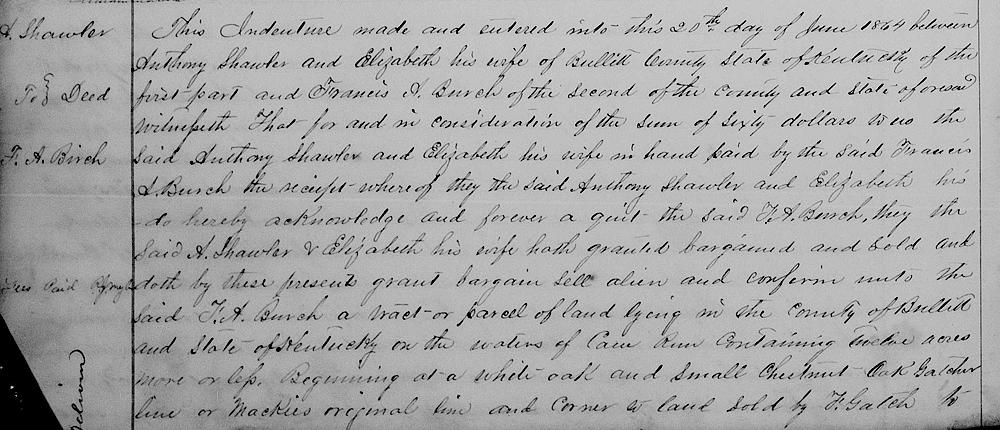 A. Shawler
To Deed
F. A. Birch
Fees Paid
This Indenture made and entered into this 20th day of June 1864 between
Anthony Shawler and Elizabeth his wife of Bullitt County State of Kentucky of the
first part and Francis A. Burch of the second of the County and State aforesaid
Witnesseth That for and in consideration of the sum of Sixty dollars to us the
said Anthony Shawler and Elizabeth his wife in hand paid by the said Francis
A. Burch the receipt whereof they the said Anthony Shawler and Elizabeth his
do hereby acknowledge and forever a quit the said F. A. Burch, they the
said A. Shawler & Elizabeth his wife hath granted bargained and sold and
doth by these presents grant bargain sell alien and confirm unto the
said F. A. Burch a tract or parcel of land lying in the County of Bullitt
and State of Kentucky on the waters of Cane Run Containing Twelve acres
more or less. Beginning at a white oak and small Chestnut Oak Gatcher
line or Mackies original line and Corner to land sold by F. Gatch to